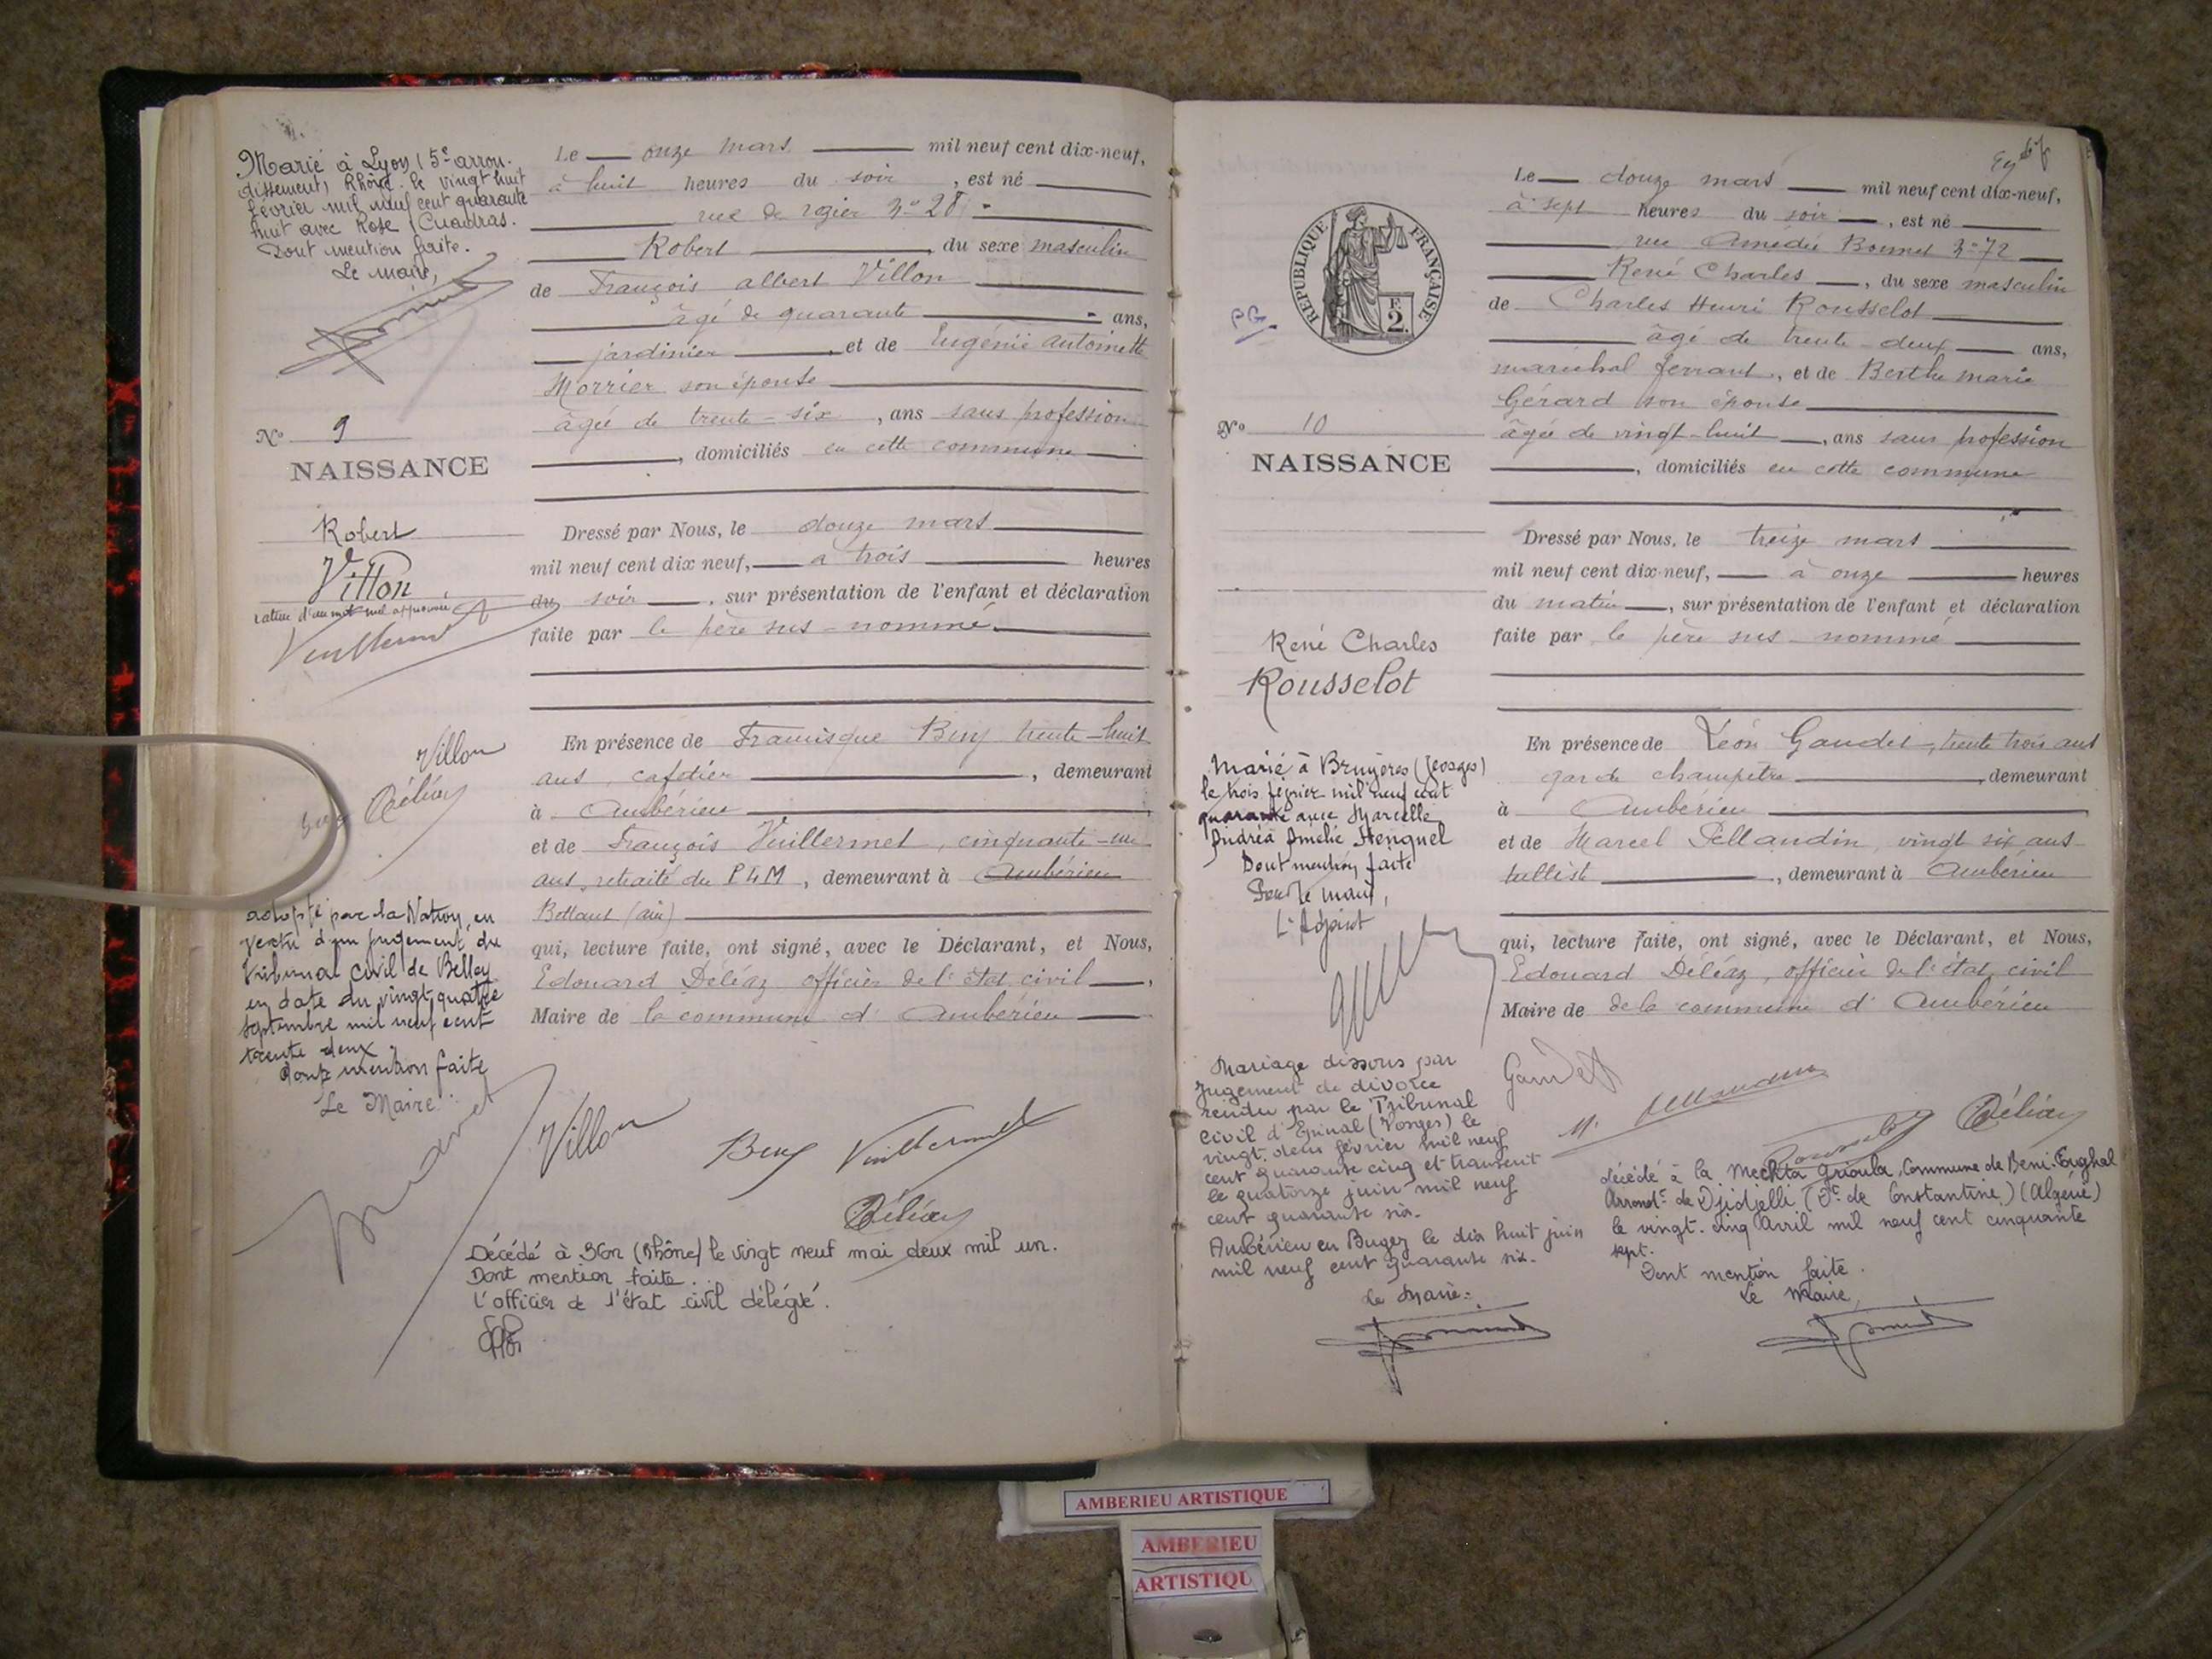 Marié à Lyon (5e arron-
dissement) Rhône. le vingt huit
février mil neuf cent quarante
huit avec Rose Cuadras.
Dont mention faite.
Le maire,
No 9
NAISSANCE
Robert
Villon
rature d'un mot nul approuvée
Vuillermet
Villon
Buy Déléaz
adopté par la Nation, en
vertu d'un jugement du
tribunal civil de Belley
en date du vingt quatre
septembre mil neuf cent
trente deux
dont mention faite
Le Maire
Le onze mars mil neuf cent dix-neuf,
à huit heures du soir, est né
rue de No 28
Robert, du sexe masculin
de François albert Villon
âgé de quarante ans,
jardinier, et de Eugénie Antoinette
Morrier son épouse
âgée de trente-six, ans sans profession
, domiciliés en cette commune
Dressé par Nous, le douze mars
mil neuf cent dix neuf, à trois heures
du soir, sur présentation de l'enfant et déclaration
faite par le père sus-nommé.
En présence de Francisque Buy trente-huit
ans, cafetier, demeurant
à Ambérieu
et de François Vuillermet, cinquante-un
ans, retraité du PLM, demeurant à Ambérieu
Bettant (ain)
qui, lecture faite, ont signé, avec le Déclarant, et Nous,
Edouard Déléaz officier de l'état civil,
Maire de la commune d'Ambérieu
Villon Buy Vuillermet
Déléaz
Décédé à Bron (Rhône) le vingt neuf mai deux mil un.
Dont mention faite.
L'officier de l'état civil délégué.
67
REPUBLIQUE FRANÇAISE
F.
2.
PG.
No 10
NAISSANCE
René Charles
Rousselot
Marié à Bruyères (Vosges)
le trois février mil neuf cent
quarante avec Marcelle
Andréa Amélie Stenquel
Dont mention faite
Pour le maire,
L'Adjoint
Mariage dissous par
Jugement de divorce
rendu par le Tribunal
Civil d'Epinal (Vosges) le
vingt-deux février mil neuf
cent quarante cinq et transcrit
le quatorze juin mil neuf
cent quarante six.
Ambérieu en Bugey le dix huit juin
mil neuf cent quarante six.
Le Maire:
Le douze mars mil neuf cent dix-neuf,
à sept heures du soir, est né
rue Amédée Bonnet No 72
René Charles, du sexe masculin
de Charles Henri Rousselot
âgé de trente-deux ans,
maréchal ferrant, et de Berthe marie
Gérard son épouse
âgée de vingt-huit, ans sans profession
, domiciliés en cette commune
Dressé par Nous, le treize mars
mil neuf cent dix-neuf, à onze heures
du matin, sur présentation de l'enfant et déclaration
faite par le père sus-nommé
En présence de Léon Gaudet, trente trois ans
garde champêtre, demeurant
à Ambérieu
et de Marcel Pellandin, vingt six ans
tulliste, demeurant à Ambérieu
qui, lecture faite, ont signé, avec le Déclarant, et Nous,
Edouard Déléaz, officier de l'état civil
Maire de de la commune d'Ambérieu
Gaudet
M. Pellandin
Rousselot Déléaz
décédé à la Mechta Grioula, Commune de Beni-Foughal
Arrondt de Djidjelli (Dt de Constantine) (Algérie)
le vingt-cinq Avril mil neuf cent cinquante
sept.
Dont mention faite.
Le Maire,
AMBERIEU ARTISTIQUE
AMBERIEU
ARTISTIQU